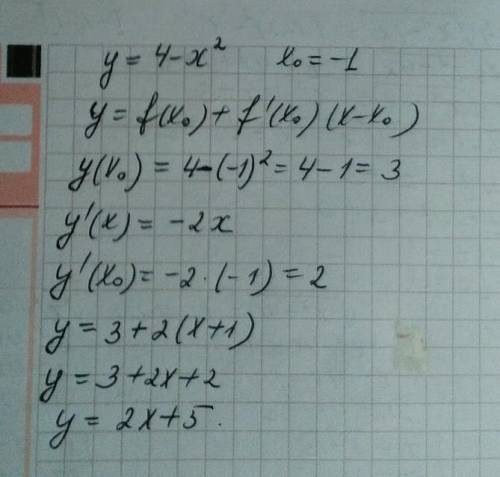 y = 4-x² x₀ = -1
y = f(x₀) + f'(x₀) (x-x₀)
y(x₀) = 4-(-1)² = 4-1 = 3
y'(x) = -2x
y'(x₀) = -2·(-1) = 2
y = 3+2(x+1)
y = 3+2x+2
y = 2x+5.